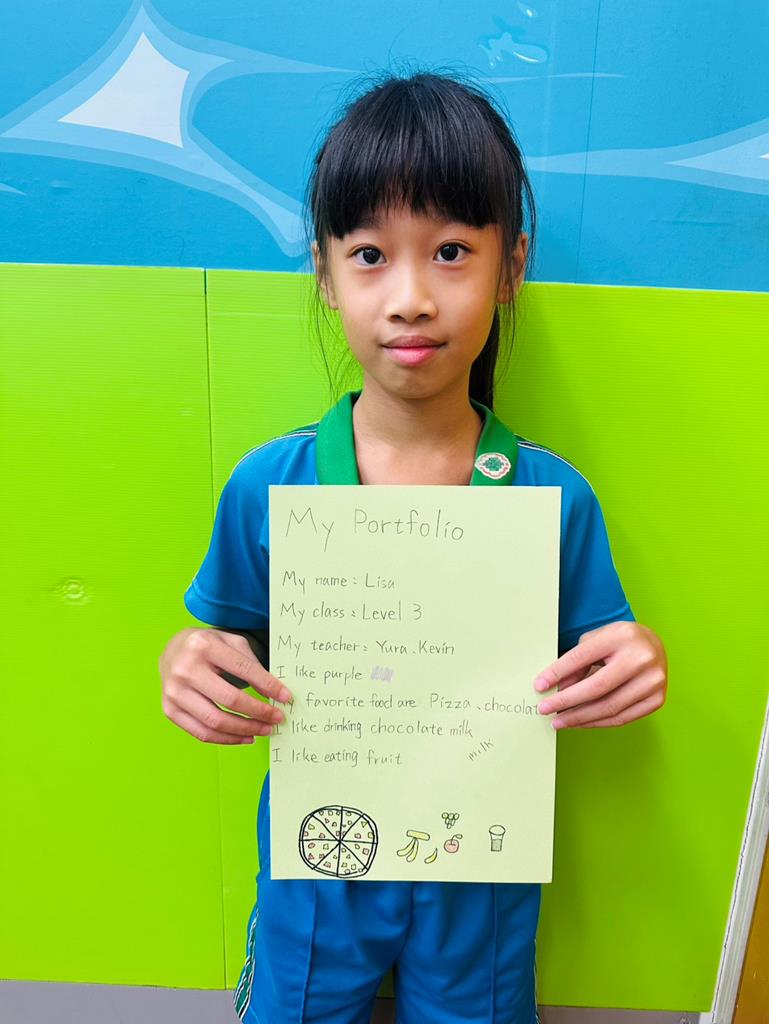 My Portfolio
My name: Lisa
My class: Level 3
My teacher: Yura、Kevin
I like purple
My favorite food are Pizza、chocolat
I like drinking chocolate milk
milk
I like eating fruit